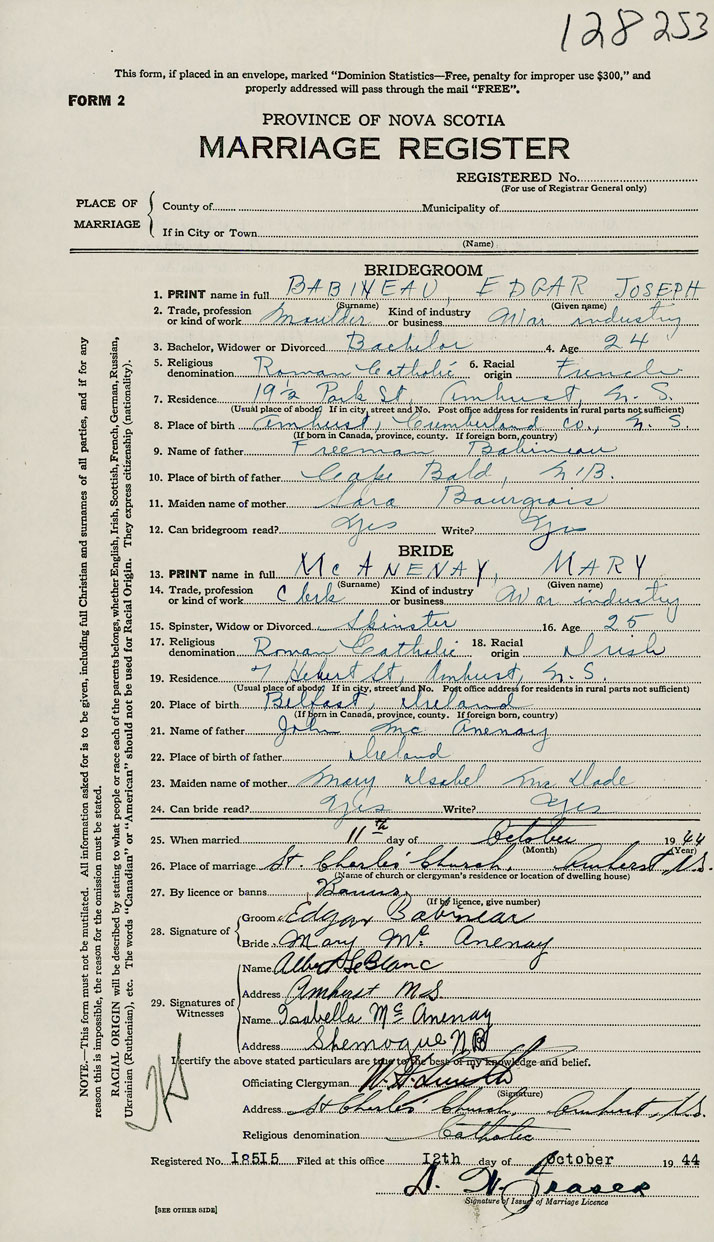 128253
This form, if placed in an envelope, marked "Dominion Statistics—Free, penalty for improper use $300," and
properly addressed will pass through the mail "FREE".
FORM 2
PROVINCE OF NOVA SCOTIA
MARRIAGE REGISTER
REGISTERED No.
(For use of Registrar General only)
PLACE OF MARRIAGE
County of Municipality of
If in City or Town
(Name)
BRIDEGROOM
1. PRINT name in full BABINEAU, EDGAR JOSEPH
(Surname) (Given name)
2. Trade, profession or kind of work Moulder Kind of industry or business War industry
3. Bachelor, Widower or Divorced Bachelor 4. Age 24
5. Religious denomination Roman Catholic 6. Racial origin French
7. Residence 19½ Park St, Amherst, N.S.
(Usual place of abode) If in city, street and No. Post office address for residents in rural parts not sufficient)
8. Place of birth Amherst, Cumberland Co., N.S.
(If born in Canada, province, county. If foreign born, country)
9. Name of father Freeman Babineau
10. Place of birth of father Cape Bald, N.B.
11. Maiden name of mother Sara Bourgeois
12. Can bridegroom read? Yes Write? Yes
BRIDE
13. PRINT name in full McANENAY, MARY
(Surname) (Given name)
14. Trade, profession or kind of work Clerk Kind of industry or business War industry
15. Spinster, Widow or Divorced Spinster 16. Age 25
17. Religious denomination Roman Catholic 18. Racial origin Irish
19. Residence 7 Hebert St, Amherst, N.S.
(Usual place of abode) If in city, street and No. Post office address for residents in rural parts not sufficient)
20. Place of birth Belfast, Ireland
(If born in Canada, province, county. If foreign born, country)
21. Name of father John McAnenay
22. Place of birth of father Ireland
23. Maiden name of mother Mary Isabel
24. Can bride read? Yes Write? Yes
25. When married 11th day of October 1944
(Month) (Year)
26. Place of marriage St. Charles' Church, Amherst, N.S.
(Name of church or clergyman's residence or location of dwelling house)
27. By licence or banns Banns
(If by licence, give number)
28. Signature of Groom Edgar Babineau
Bride Mary McAnenay
29. Signatures of Witnesses
Name Albert LeBlanc
Address Amherst N.S.
Name Isabella McAnenay
Address Shemogue N.B.
I certify the above stated particulars are true to the best of my knowledge and belief.
Officiating Clergyman
(Signature)
Address St Charles Church, Amherst, N.S.
Religious denomination Catholic
Registered No. I85I5 Filed at this office I2th day of October 1944
D. W. Fraser
Signature of Issuer of Marriage Licence
[SEE OTHER SIDE]
NOTE.—This form must not be mutilated. All information asked for is to be given, including full Christian and surnames of all parties, and if for any
reason this is impossible, the reason for the omission must be stated.
RACIAL ORIGIN will be described by stating to what people or race each of the parents belongs, whether English, Irish, Scottish, French, German, Russian,
Ukrainian (Ruthenian), etc. The words "Canadian" or "American" should not be used for Racial Origin. They express citizenship (nationality).